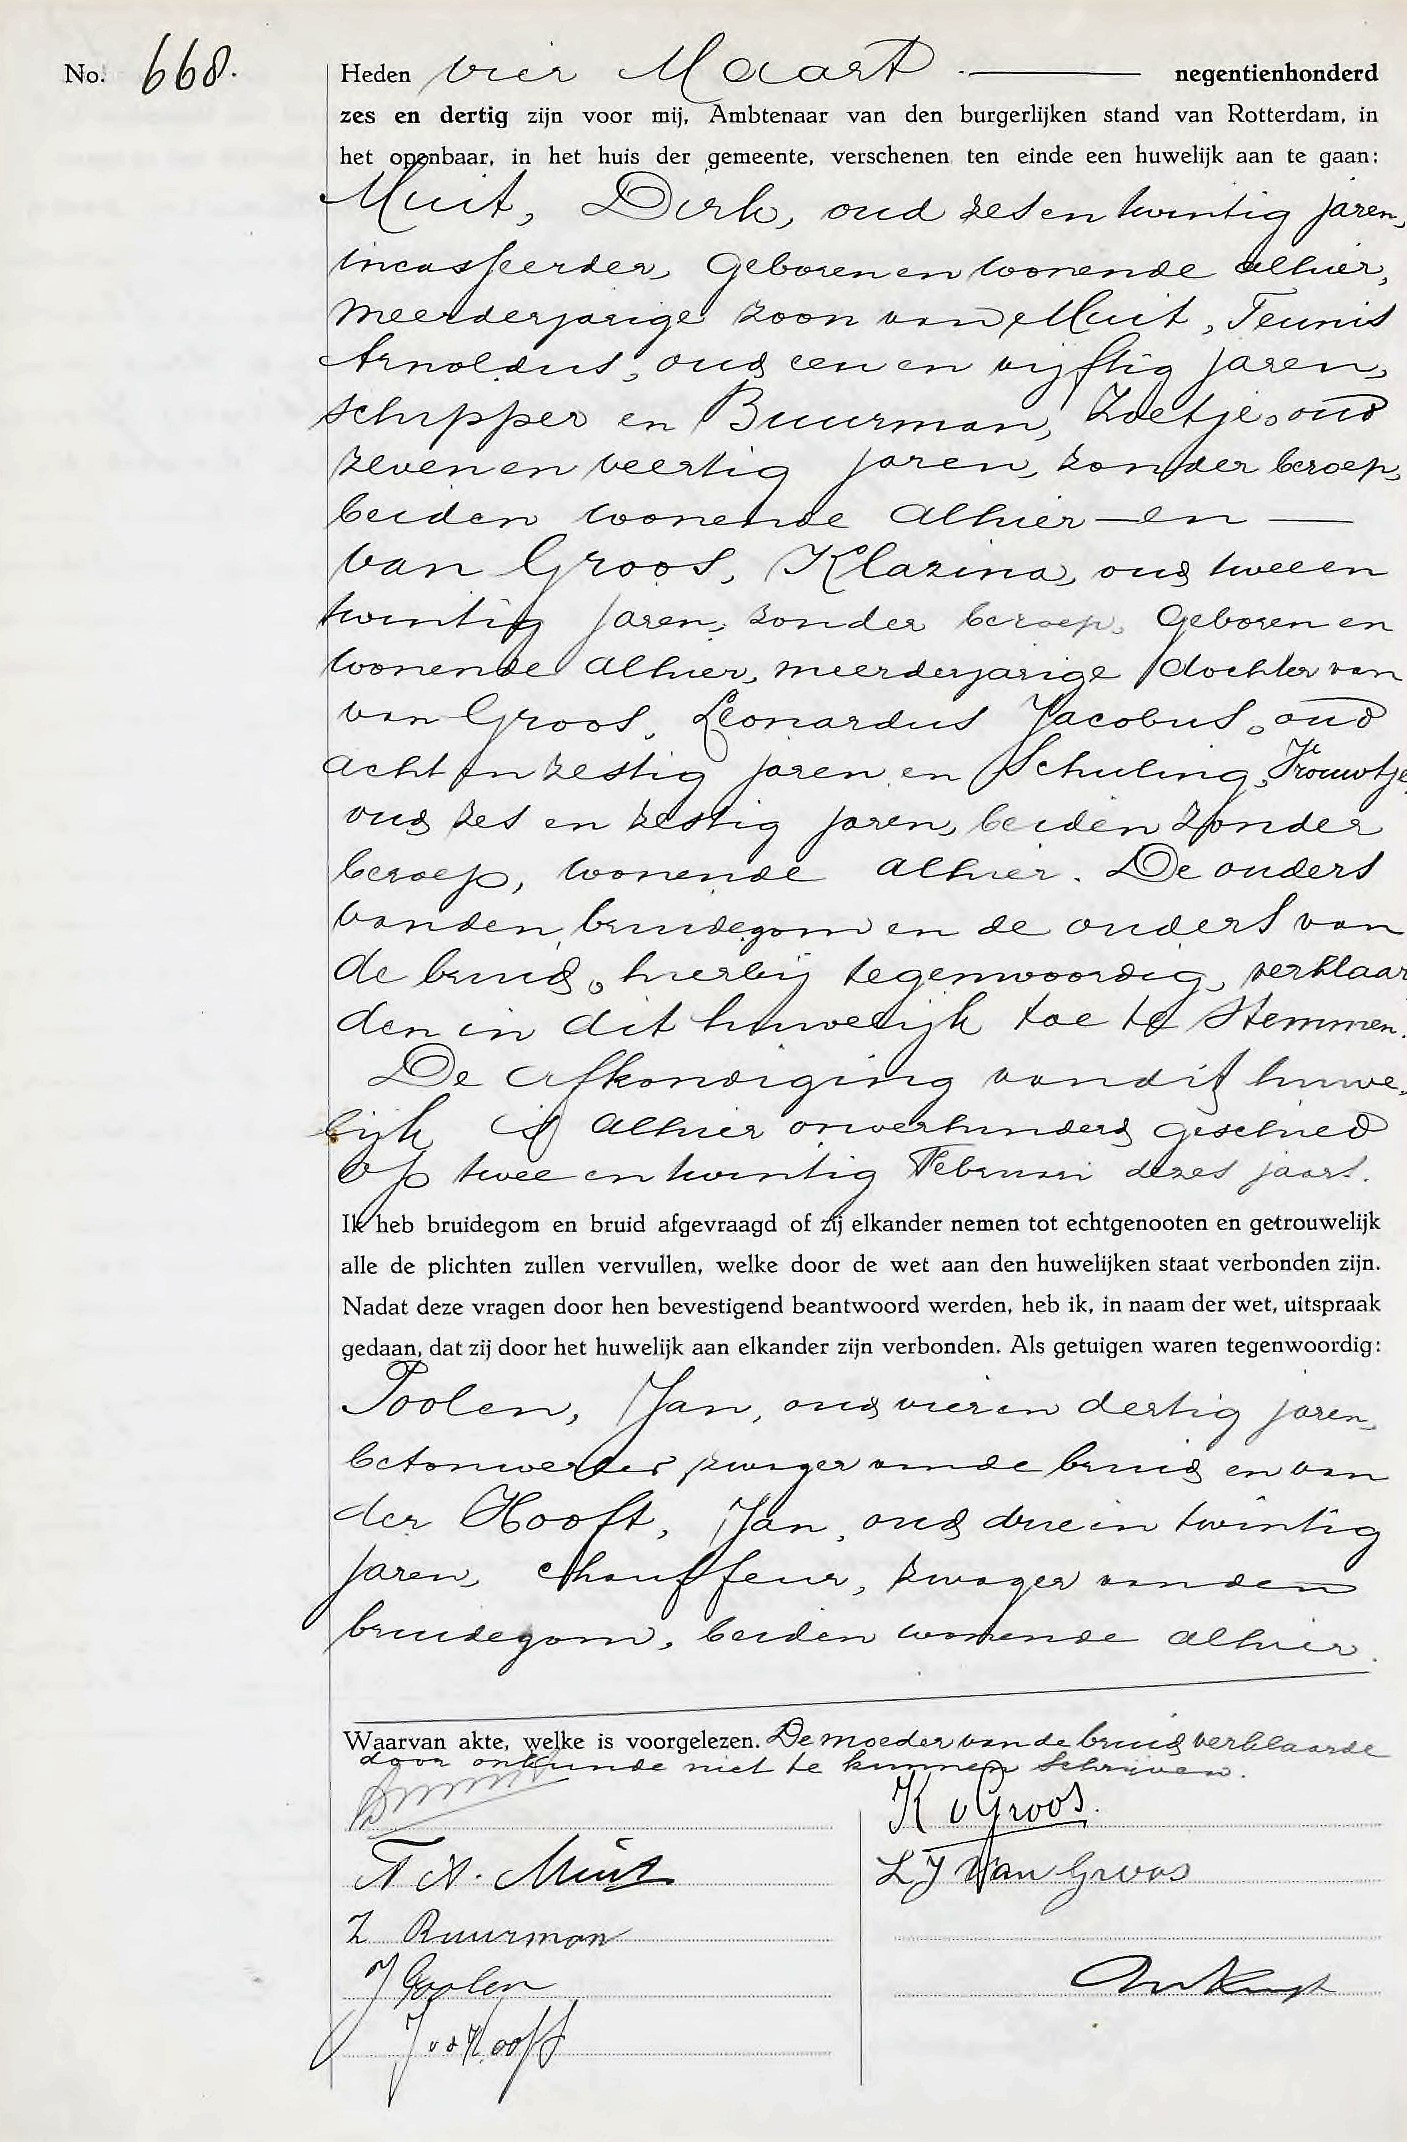 No. 668.
Heden vier Maart negentienhonderd
zes en dertig zijn voor mij, Ambtenaar van den burgerlijken stand van Rotterdam, in
het openbaar, in het huis der gemeente, verschenen ten einde een huwelijk aan te gaan:
Muit, Dirk, oud zes en twintig jaren,
incasseerder, geboren en wonende alhier,
meerderjarige zoon van Muit, Teunis
Arnoldus, oud een en vijftig jaren,
schipper en Buurman, Zoetje, oud
zeven en veertig jaren, zonder beroep,
beiden wonende alhier — en —
van Groos, Klazina, oud twee en
twintig jaren, zonder beroep, geboren en
wonende alhier, meerderjarige dochter van
van Groos, Leonardus Jacobus, oud
acht en zestig jaren en Schuling, Trouwtje,
oud zes en zestig jaren, beiden zonder
beroep, wonende alhier. De ouders
van den bruidegom en de ouders van
de bruid, hierbij tegenwoordig, verklaar
den in dit huwelijk toe te stemmen.
De afkondiging van dit huwe-
lijk is alhier onverhinderd geschied
op twee en twintig Februari dezes jaars.
Ik heb bruidegom en bruid afgevraagd of zij elkander nemen tot echtgenooten en getrouwelijk
alle de plichten zullen vervullen, welke door de wet aan den huwelijken staat verbonden zijn.
Nadat deze vragen door hen bevestigend beantwoord werden, heb ik, in naam der wet, uitspraak
gedaan, dat zij door het huwelijk aan elkander zijn verbonden. Als getuigen waren tegenwoordig:
Poolen, Jan, oud vier en dertig jaren,
betonwerker zwager van de bruid en van
der Hooft, Jan, oud drie en twintig
jaren, chauffeur, zwager van den
bruidegom, beiden wonende alhier.
Waarvan akte, welke is voorgelezen. De moeder van de bruid verklaarde
door onkunde niet te kunnen schrijven.
K v Groos.
T A. Muit
L J van Groos
Z Buurman
J Poolen
J v d Hooft